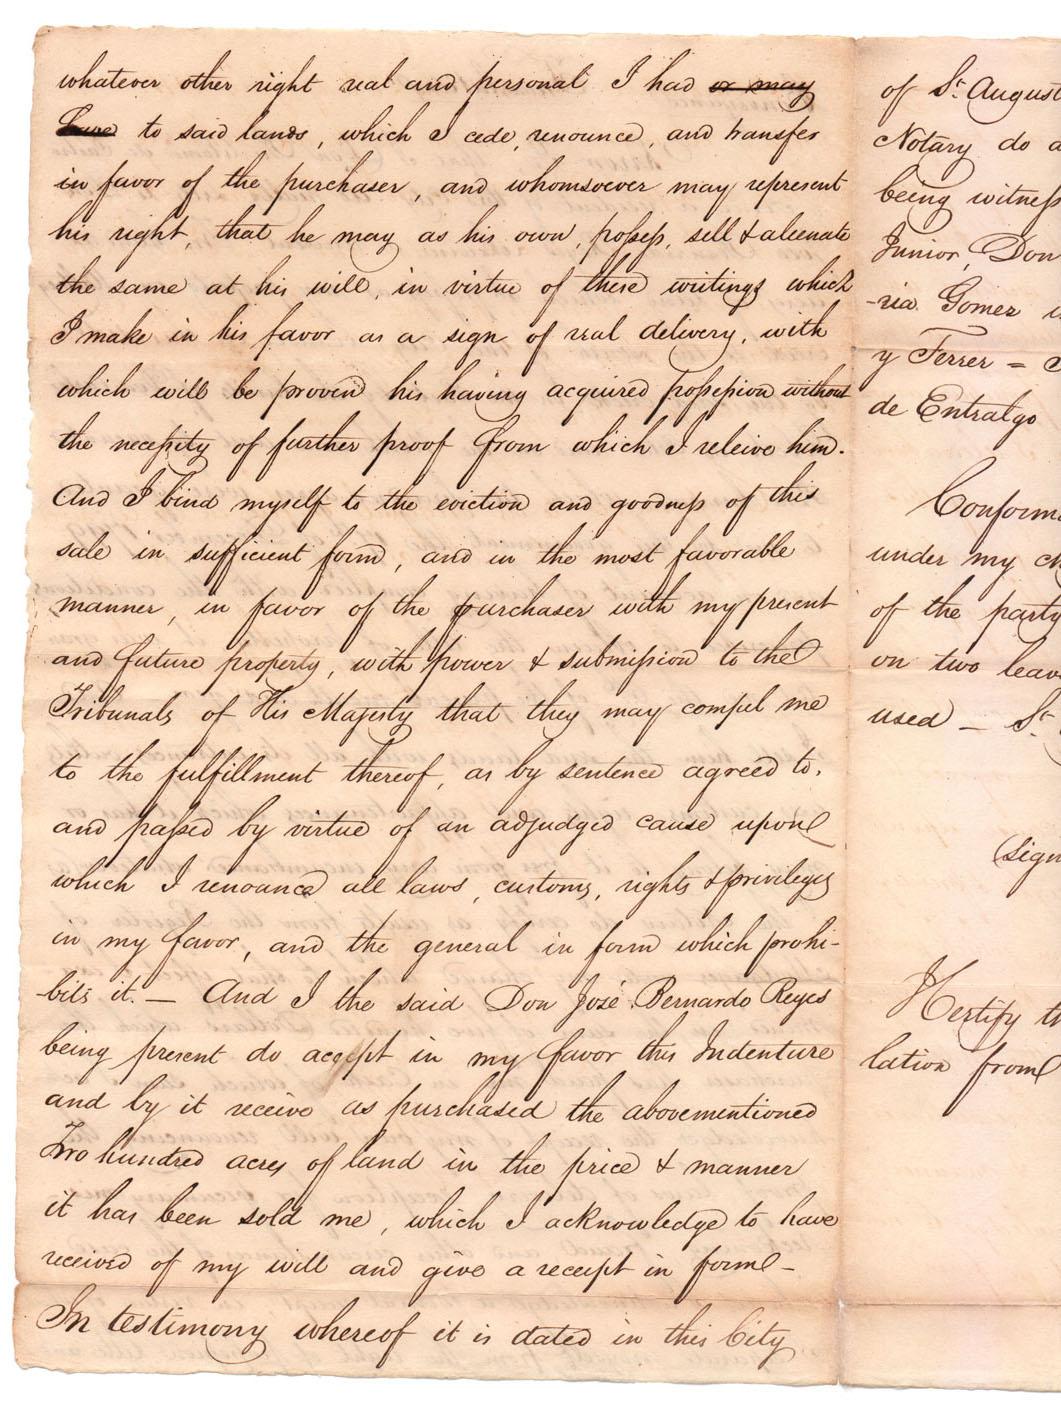 whatever other right real and personal I had or may
have to said lands, which I cede, renounce, and transfer
in favor of the purchaser, and whomsoever may represent
his right, that he may as his own, possess, sell & alienate
the same at his will, in virtue of these writings which
I make in his favor as a sign of real delivery, with
which will be proven'd his having acquired possession without
the necessity of further proof from which I releive him.
And I bind myself to the eviction and goodness of this
sale in sufficient form, and in the most favorable
manner, in favor of the purchaser with my present
and future property, with power & submission to the
Tribunals of His Majesty that they may compel me
to the fulfillment thereof, as by sentence agreed to,
and passed by virtue of an adjudged cause upon
which I renounce all laws, customs, rights & privileges
in my favor, and the general in form which prohi-
-bits it. — And I the said Don José Bernardo Reyes
being present do accept in my favor this Indenture
and by it receive as purchased the abovementioned
Two hundred acres of land in the price & manner
it has been sold me, which I acknowledge to have
received of my will and give a receipt in form —
In testimony whereof it is dated in this City
of St. August
Notary do a
being witness
Junior, Don
-ria Gomez
y Ferrer =
de Entralgo
Conform
under my
of the party
on two leav
used — St.
(sign
I Certify th
lation from